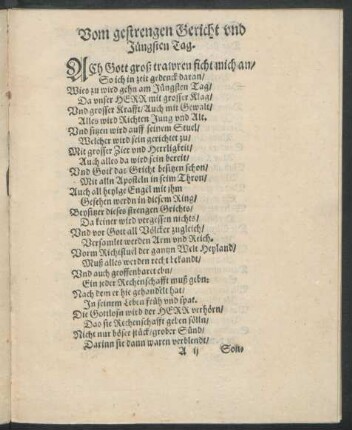 Vom gestrengen Gericht vnd
Jüngsten Tag.
ACh Gott groß trawren ficht mich an/
So ich in zeit gedenck daran/
Wies zu wird gehn am Jüngsten Tag/
Da vnser HERR mit grosser Klag/
Vnd grosser Krafft/ Auch mit Gewalt/
Alles wird Richten Jung vnd Alt.
Vnd sitzen wird auff seinem Stuel/
Welcher wird sein gerichtet zu/
Mit grosser Zier vnd Herrligkeit/
Auch alles da wird sein bereit/
Vnd Gott das Gricht besitzen schon/
Mit alln Aposteln in seim Thron/
Auch all heylge Engel mit ihm
Gesehen werdn in diesem Ring/
Beysitzer dieses strengen Grichts/
Da keiner wird vergessen nichts/
Vnd vor Gott all Völcker zugleich/
Versamlet werden Arm vnd Reich.
Vorm Richtstuel der gantzn Welt Heyland/
Muß alles werden recht bekandt/
Vnd auch groffenbaret ebn/
Ein jeder Rechenschafft muß gebn:
Nach dem er hie gehandelt hat/
In seinem Leben früh vnd spat.
Die Gottlosn wird der HERR verhörn/
Das sie Rechenschafft geben sölln/
Nicht nur böser stück/ grober Sünd/
Darinn sie dann waren verblendt/
A ij Son-